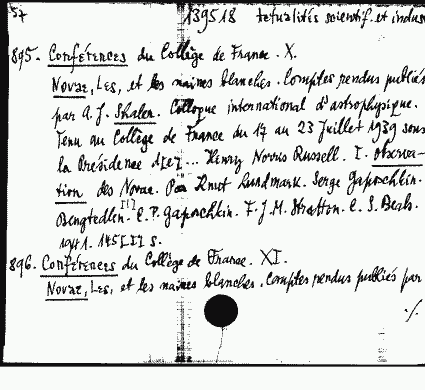 57 139518 Actualités scientif. et indus
895. Conférences du Collège de France. X.
Novae, Les, et les naines blanches. Comptes rendus publiés
par A. J. Shaler. Colloque international d'astrophysique.
Tenu au Collège de France du 17 au 23 Juillet 1939 sous
la Présidence de ... Henry Norris Russell. I. Observa-
tion des Novae. Par Knut Lundmark. Serge Gaposchkin.
Bengt Edlén. C. P. Gaposchkin. F. J. M. Stratton. C. S. Beals.
1941. 145 [1] s.
896. Conférences du Collège de France. XI.
Novae, Les, et les naines blanches. Comptes rendus publiés par
./.